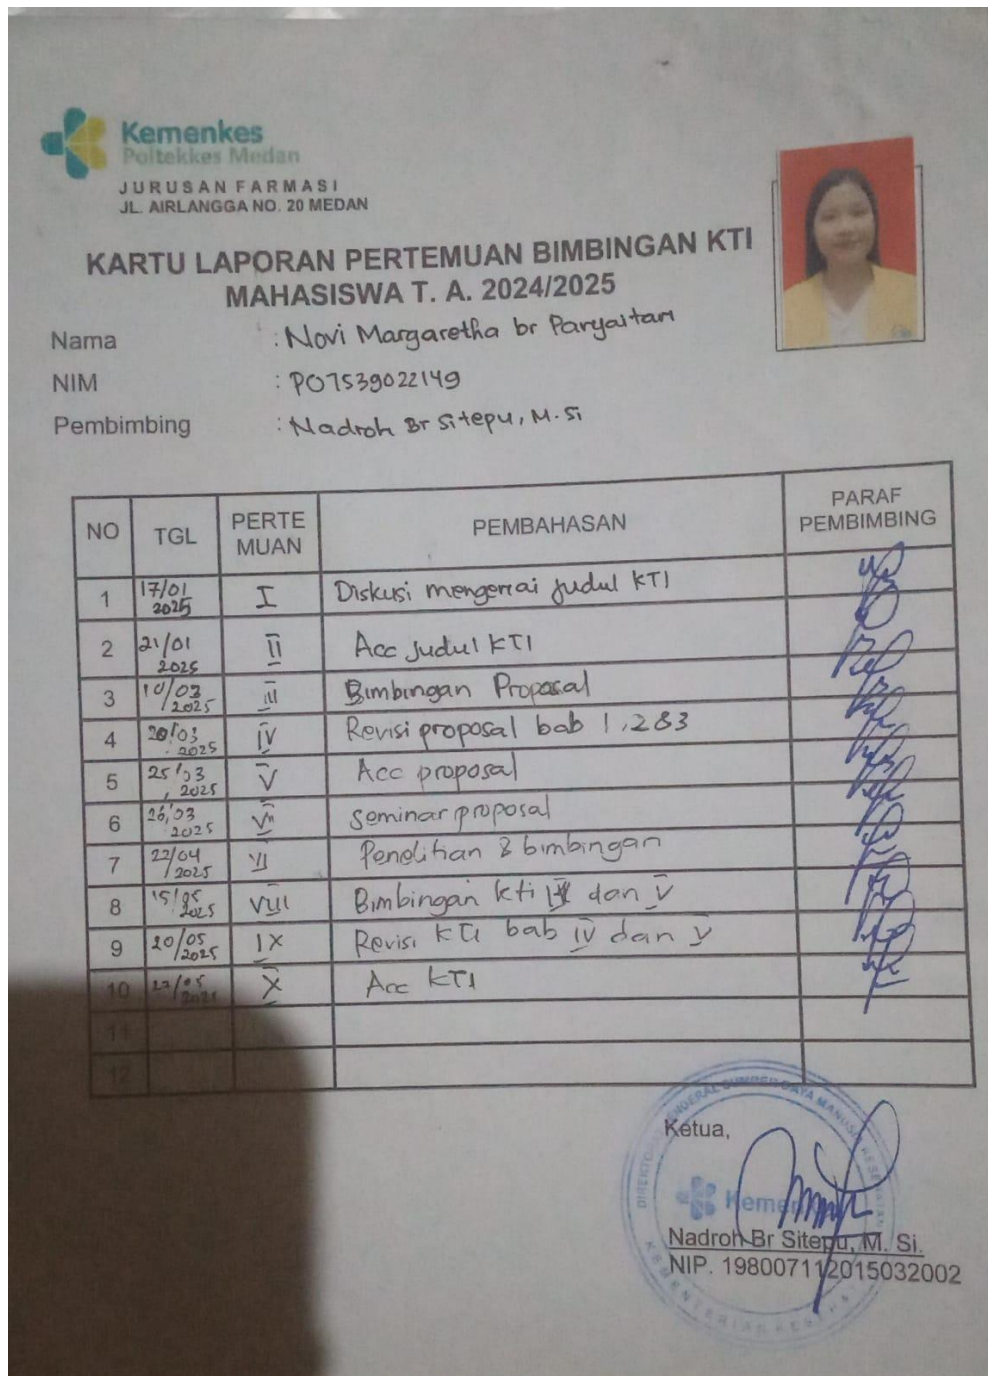 Kemenkes
Poltekkes Medan
JURUSAN FARMASI
JL. AIRLANGGA NO. 20 MEDAN
KARTU LAPORAN PERTEMUAN BIMBINGAN KTI
MAHASISWA T. A. 2024/2025
Nama : Novi Margaretha br
NIM : PO7539022149
Pembimbing : Nadroh Br Sitepu, M.Si
NO TGL PERTE MUAN PEMBAHASAN PARAF PEMBIMBING
1 17/01 2025 I Diskusi mengenai judul KTI
2 21/01 2025 II Acc judul KTI
3 10/03 2025 III Bimbingan Proposal
4 20/03 2025 IV Revisi proposal bab 1,2&3
5 25/03 2025 V Acc proposal
6 26/03 2025 seminar proposal
7 22/04 2025 Penelitian & bimbingan
8 15/05 2025 VIII Bimbingan kti IV dan V
9 20/05 2025 IX Revisi KTI bab IV dan V
10 2025 X Acc KTI
11
12
Ketua,
Kemenkes
Nadroh Br Sitepu, M. Si.
NIP. 198007112015032002